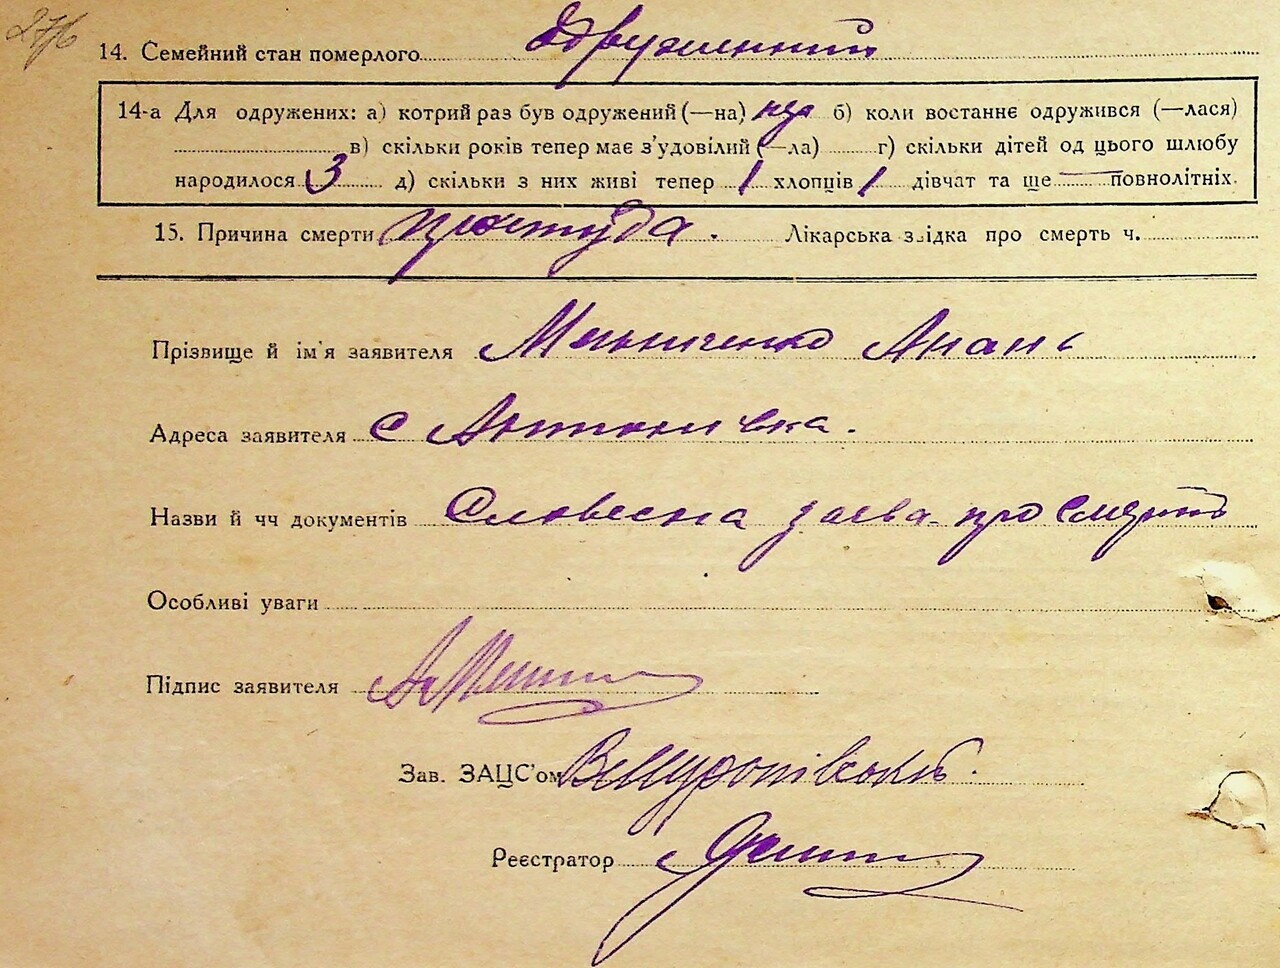 276
14. Семейний стан померлого Одружений
14-а Для одружених: а) котрий раз був одружений (—на) б) коли востаннє одружився (—лася)
в) скільки років тепер має з'удовілий (—ла) г) скільки дітей од цього шлюбу
народилося 3 д) скільки з них живі тепер 1 хлопців 1 дівчат та ще — повнолітніх.
15. Причина смерти простуда. Лікарська звідка про смерть ч.
Прізвище й ім'я заявителя Мельниченко Анань
Адреса заявителя с Антонівка.
Назви й чч документів Словесна заева про смерть
Особливі уваги
Підпис заявителя
Зав. ЗАЦС'ом
Реєстратор